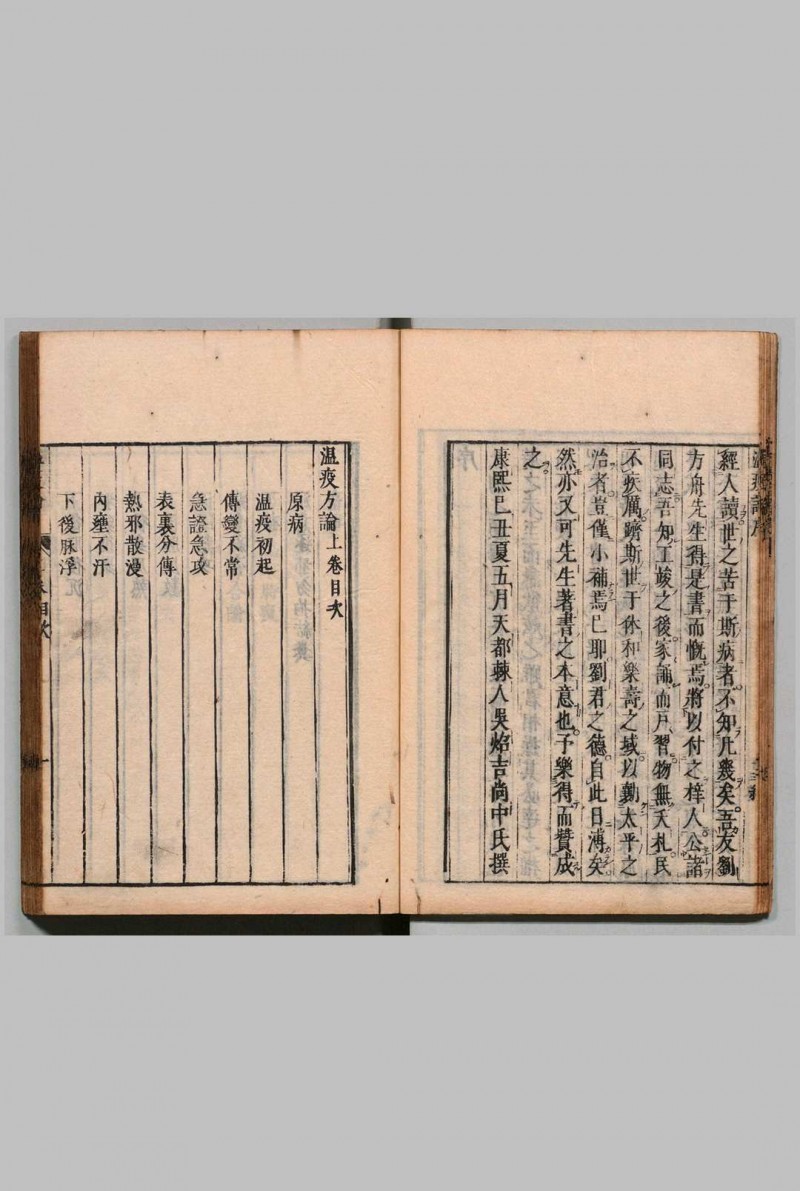 經人讀世之苦于斯病者不知凡幾矣吾友劉
方舟先生得是書而慨焉將以付之梓人公諸
同志吾知工竣之後家誦而戶習物無夭札民
不疾厲躋斯世于休和樂壽之域以勷太平之
治者豈僅小補焉已耶劉君之德自此日溥矣
然亦又可先生著書之本意也予樂得而贊成
之
康熙己丑夏五月天都棘人吳焰吉尚中氏撰
温疫方論上卷目次
原病
温疫初起
傳變不常
急證急攻
表裏分傳
熱邪散漫
內壅不汗
下後脉浮